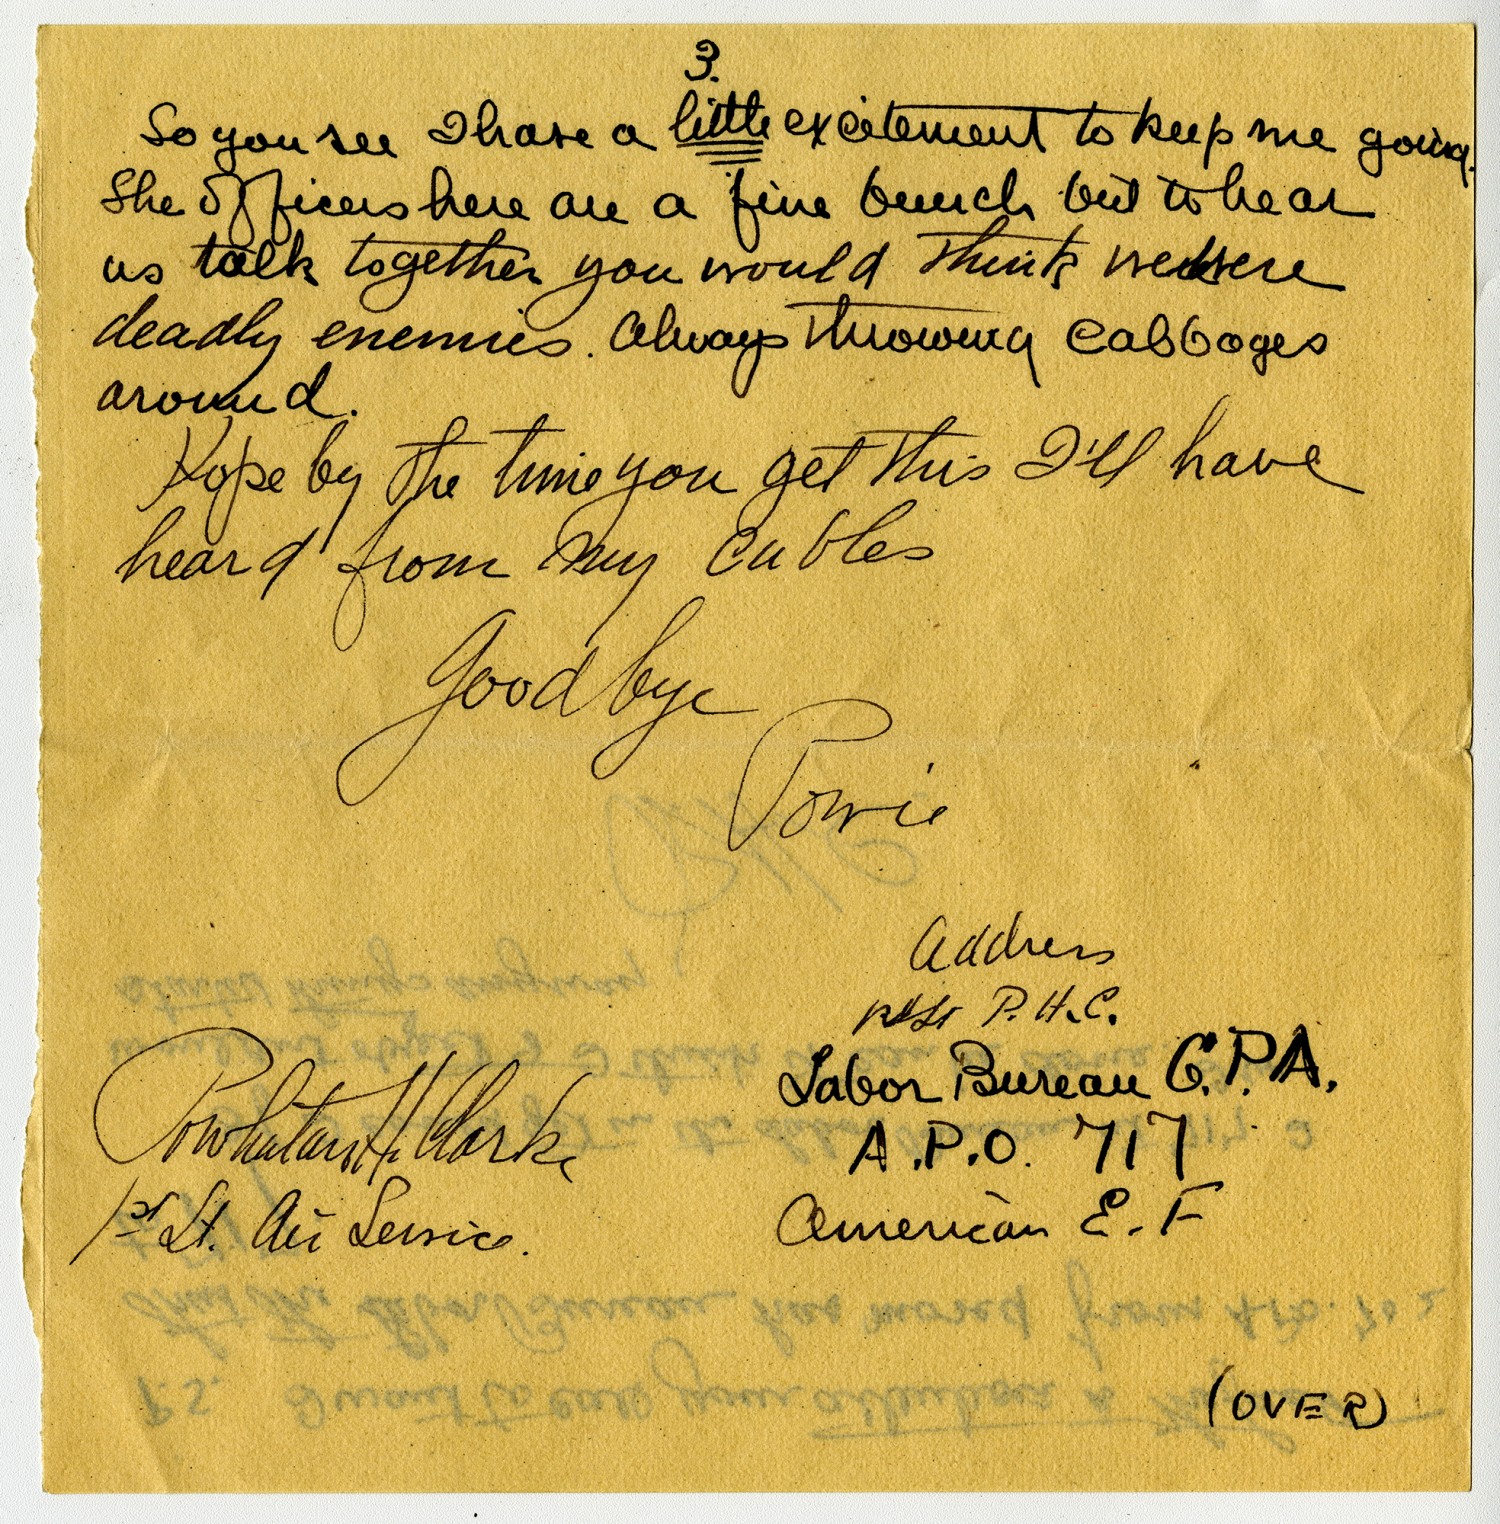 3.
So you see I have a little excitement to keep me going.
The officers here are a fine bunch but to hear
us talk together you would think we were
deadly enemies. Always throwing cabbages
around.
Hope by the time you get this I'll have
heard from my cables
Goodbye
Powie
Address
P.H.C.
Labor Bureau G.P.A.
A.P.O. 717
American E.F
Powhatan H Clarke
1st Lt. Air Service.
(OVER)